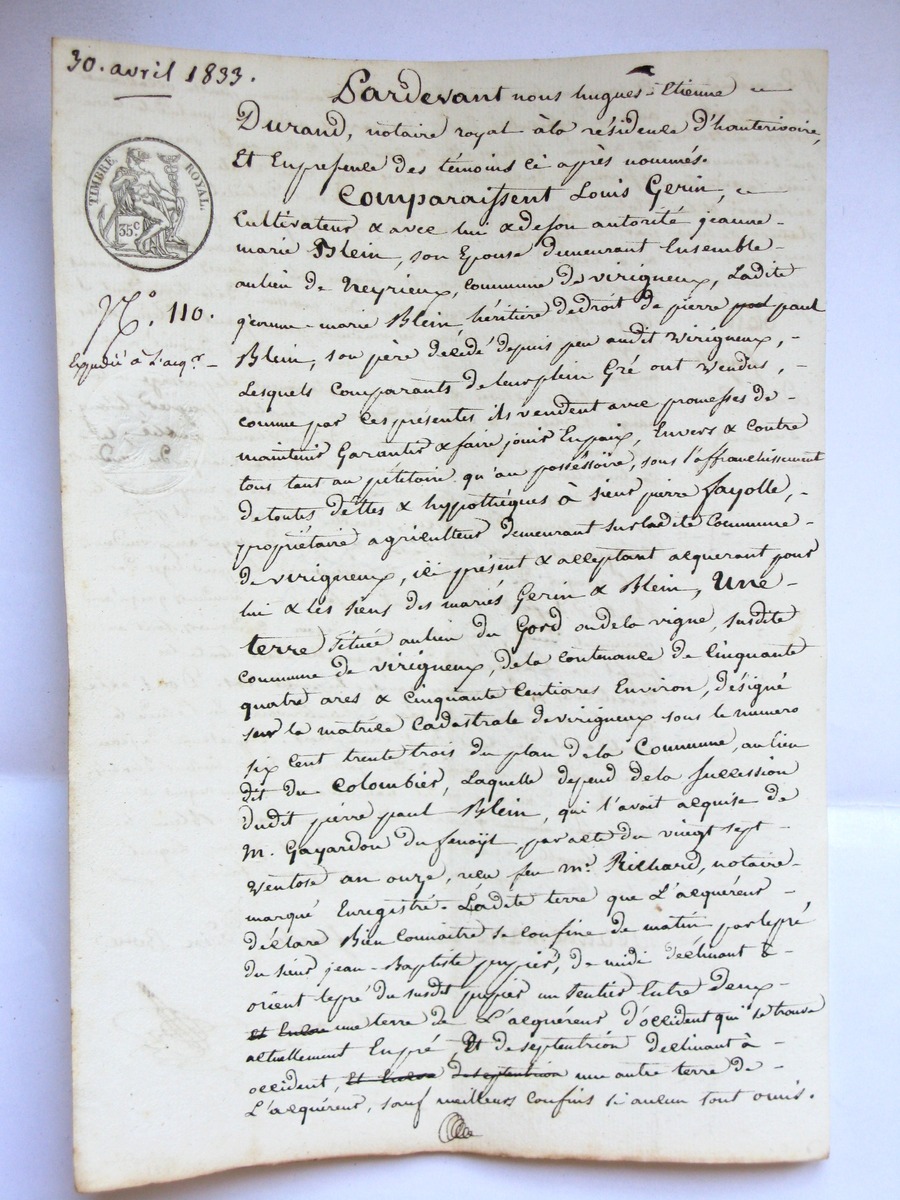 30. avril 1833.
TIMBRE ROYAL.
35c
N.° 110.
Expédié à l'acqr
Pardevant nous hugues-Etienne
Durand, notaire royal à la résidence d'hauterivoire,
Et En présence des témoins ci après nommés.
Comparaissent Louis Gerin,
Cultivateur & avec lui & de son autorité jeanne-
marie Blein, son Epouse demeurant Ensemble
au lieu de Neyrieux, commune de virigneux, Ladite
jeanne-marie Blein, héritière de droit de pierre paul
Blein, son père décédé depuis peu audit virigneux,
Lesquels comparants de leur plein Gré ont vendus,
comme par ces présentes ils vendent avec promesses de
maintenir Garantir & faire jouir En paix, Envers & contre
tous tant au pétitoire qu'au posséssoire, sous l'affranchissement
de toutes dêttes & hypothéques à sieur pierre fayolle,
propriétaire agriculteur demeurant sur ladite Commune
de virigneux, ici présent & acceptant acquerant pour
lui & les siens des mariés Gerin & Blein, Une
terre située au lieu du Gord ou de la vigne, susdite
commune de virigneux, de la contenance de Cinquante
quatre ares & cinquante centiares Environ, désigné
sur la matrice cadastrale de virigneux sous le numero
six cent trente trois du plan de la Commune, au lieu
dit du Colombier, Laquelle depend de la succession
dudit pierre paul Blein, qui l'avait acquise de
M. Gayardon du fenoÿl, par acte du vingt sept
Ventose an onze, reçu feu me. Richard, notaire
marqué Enregistré. Ladite terre que L'acquéreur
déclare Bien connaitre se confine de matin par le pré
du sieur jean-Baptiste pupier, de midi déclinant à
orient le pré du susdit pupier un sentier Entre deux
une terre de L'acquéreur d'occident qui se trouve
actuellement En pré, Et de septentrion déclinant à
occident, une autre terre de
L'acquéreur, sauf meilleurs confins si aucun sont omis.